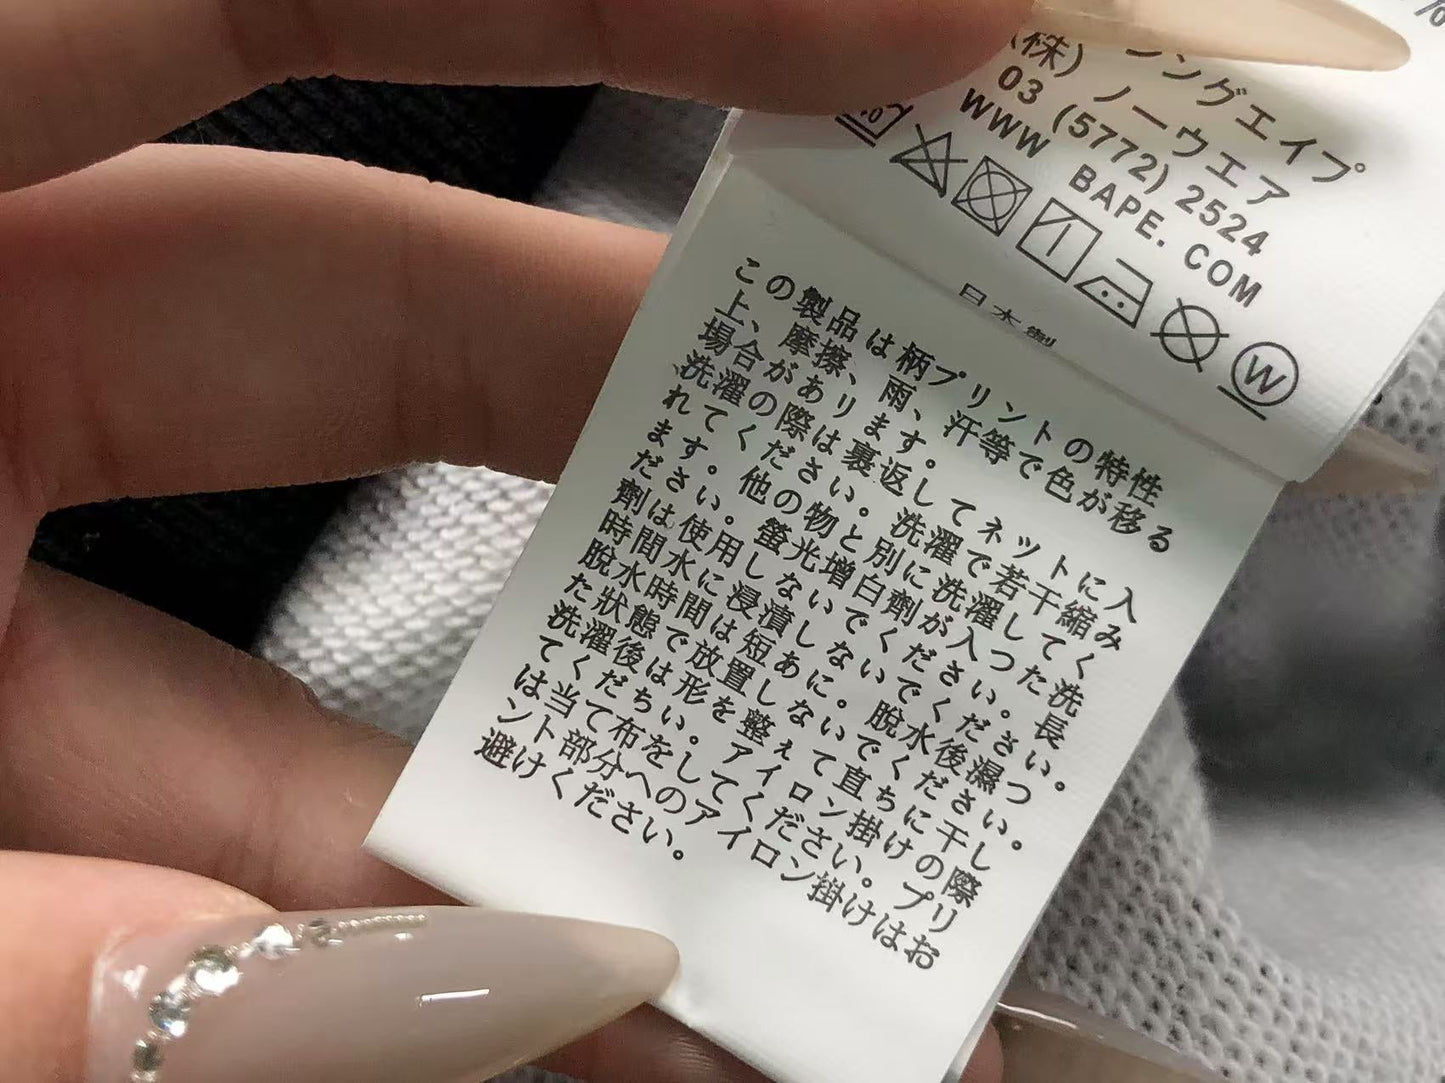 %
ングエイプ
(株) ノーウエア
03 (5772) 2524
WWW BAPE. COM
W
日本製
この製品は柄プリントの特性
上、摩擦、雨、汗等で色が移る
場合があります。
洗濯の際は裏返してネットに入
れてください。洗濯で若干縮み
ます。他の物と別に洗濯してく
ださい。螢光増白劑が入つた洗
劑は使用しないでください。長
時間水に浸漬しないでください。
脫水時間は短あに。脫水後濕つ
た狀態で放置しないでください。
洗濯後は形を整ぇて直ちに干し
てくだちい。アイロン掛けの際
は当て布をしてください。プリ
ント部分へのアイロン掛けはお
避けください。